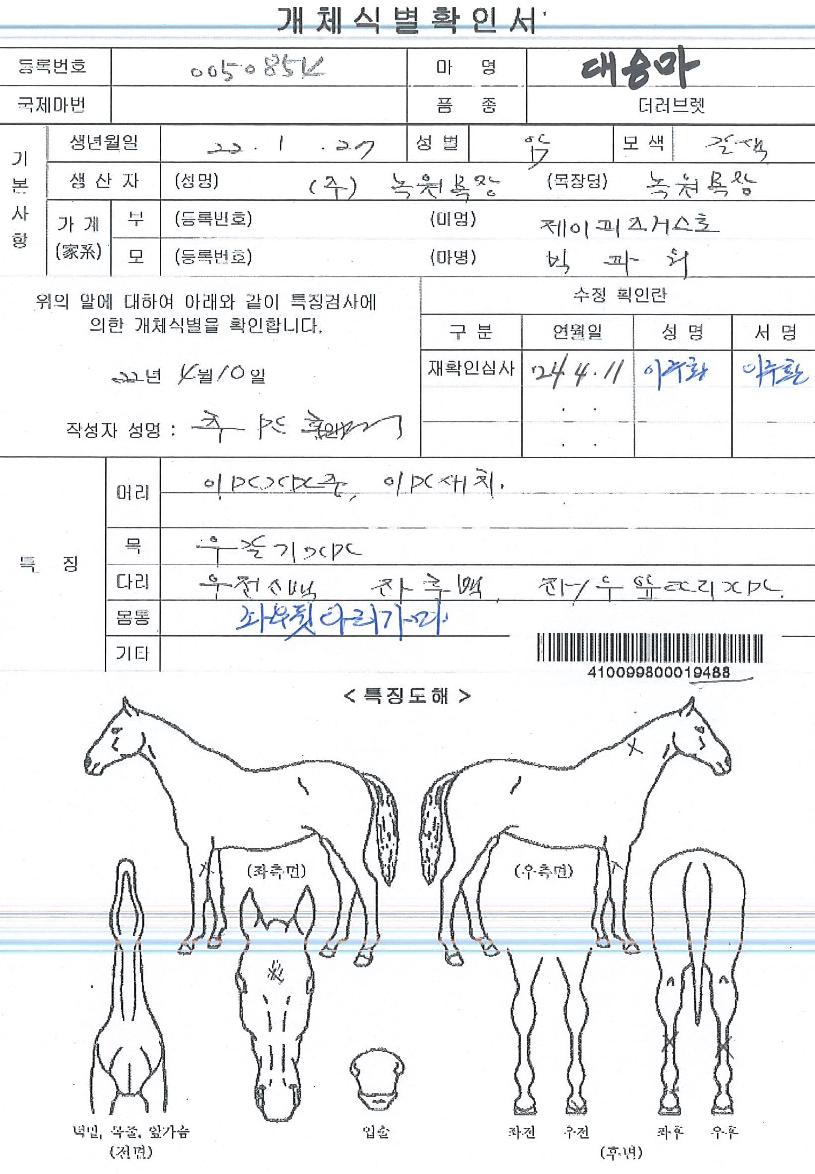 개체식별확인서
등록번호 0050854 마 명 대승마
국제마번 품 종 더러브렛
기본사항
생년월일 22. 1. 27 성별 암 모색 갈색
생산자 (성명) (주) 녹원목장 (목장명) 녹원목장
가계 (家系) 부 (등록번호) (마명) 제이피즈거스토
모 (등록번호) (마명) 빅 파 워
위의 말에 대하여 아래와 같이 특징검사에
의한 개체식별을 확인합니다.
22년 4월 10일
작성자 성명 :
수정 확인란
구 분 연월일 성 명 서 명
재확인심사 '24. 4. 11
. .
. .
특 징
머리
목
다리 우전 좌후백,
몸통 좌우뒷다리가마.
기타
410099800019488
< 특징도해 >
(좌측면) (우측면)
턱밑, 목줄, 앞가슴 입술 좌전 우전 좌후 우후
(전면) (후면)